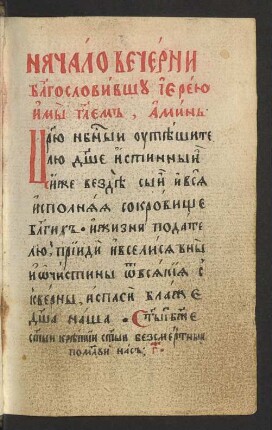 НАЧАЛО ВЕЧЕРНИ
Бл҃гословившꙋ їерею
и мы гл҃емъ, аминь
Цр҃ю нб҃ныи оутѣшите
лю дш҃е истинныи
иже вездѣ сыи и вся
исполняя сокровище
бл҃гихъ · и жизни подате
лю, прїиди и вселися в ны
и ѡчисти ны ѿ всякїя с
кверны, и спаси бл҃же
дш҃а наша · Ст҃ыи бж҃е
ст҃ыи крѣпкїи ст҃ыи безсмертныи
помилꙋи насъ; г҃·